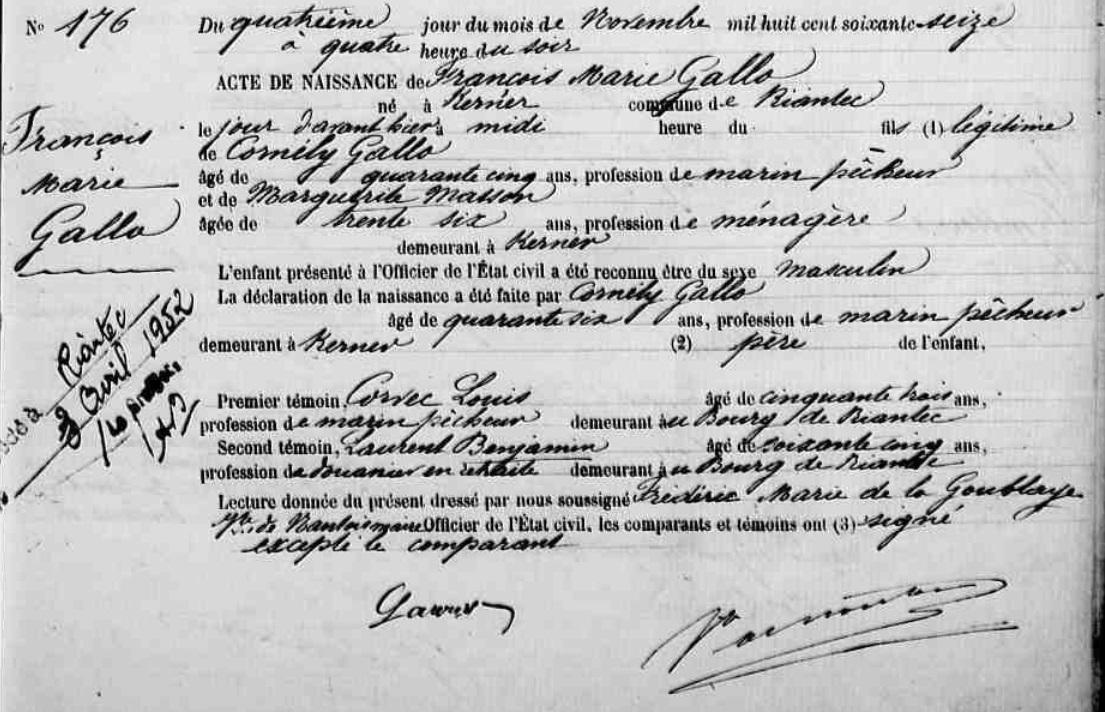 N° 176
Du quatrième jour du mois de Novembre mil huit cent soixante-seize
à quatre heure du soir
ACTE DE NAISSANCE de François Marie Gallo
né à Kerner commune de Riantec
le jour d'avant hier à midi heure du fils (1) légitime
de Cornély Gallo
âgé de quarante cinq ans, profession de marin pêcheur
et de Marguerite Masson
âgée de trente six ans, profession de ménagère
demeurant à Kerner
L'enfant présenté à l'Officier de l'État civil a été reconnu être du sexe masculin
La déclaration de la naissance a été faite par Cornély Gallo
âgé de quarante six ans, profession de marin pêcheur
demeurant à Kerner (2) père de l'enfant.
Premier témoin, Corvec Louis âgé de cinquante trois ans,
profession de marin pêcheur demeurant au Bourg de Riantec
Second témoin, Laurent Benjamin âgé de soixante cinq ans,
profession de douanier en retraite demeurant au Bourg de Riantec
Lecture donnée du présent dressé par nous soussigné Frédéric Marie de la Goublaye
Vte de Nantois maire Officier de l'État civil, les comparants et témoins ont (3) signé
excepté le comparant
François
Marie
Gallo
Riantec
Avril 1952